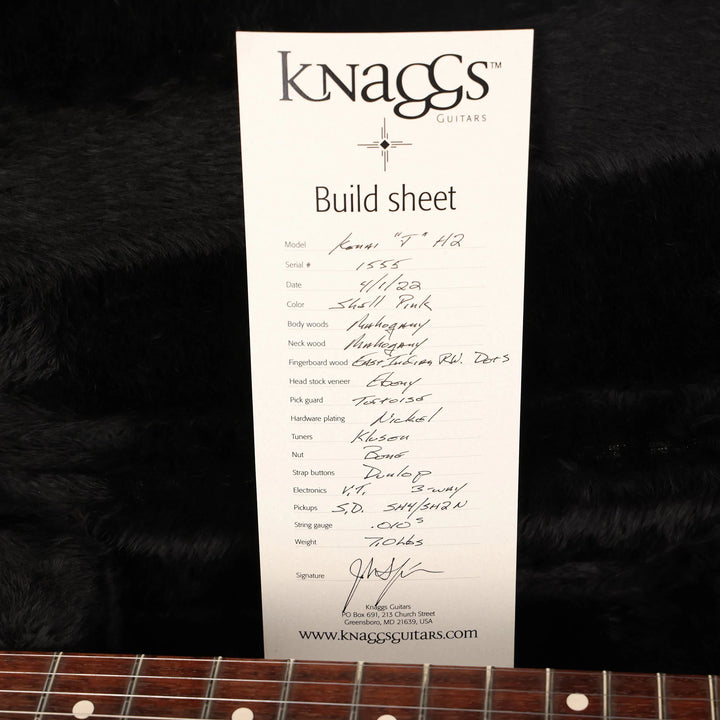 KNaGGS™
GUITARS
Build sheet
Model Kenai "J" H2
Serial # 1555
Date 4/1/22
Color Shell Pink
Body woods Mahogany
Neck wood Mahogany
Fingerboard wood East Indian RW. Dots
Head stock veneer Ebony
Pick guard Tortoise
Hardware plating Nickel
Tuners Kluson
Nut Bone
Strap buttons Dunlop
Electronics V.T. 3-way
Pickups S.D. SH4/SH2N
String gauge .010s
Weight 7.0 Lbs
Signature
Knaggs Guitars
PO Box 691, 213 Church Street
Greensboro, MD 21639, USA
www.knaggsguitars.com